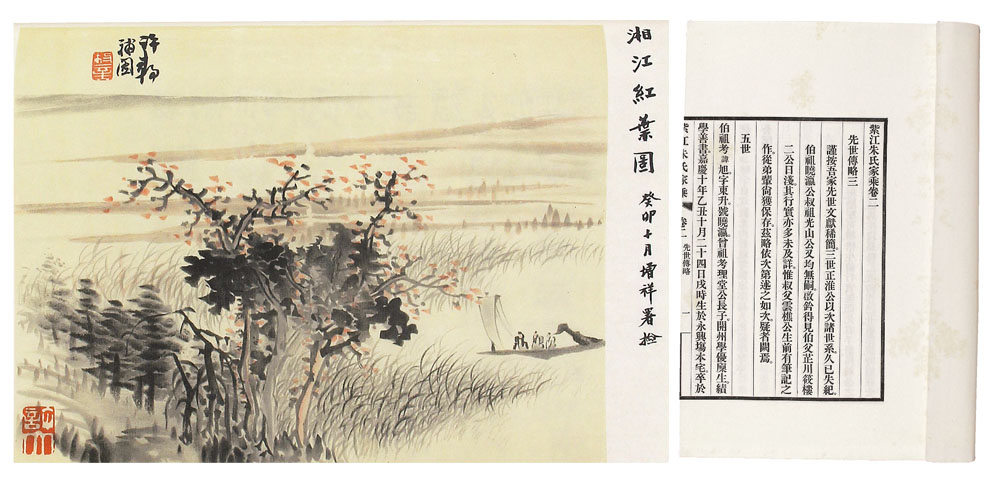 補圖
湘江紅葉圖
癸卯十月增祥署檢
紫江朱氏家乘卷二
先世傳略三
謹按吾家先世文獻稀簡。三世正淮公以次諸世系。久已失紀。
伯祖曉瀛公叔祖光山公又均無嗣。啟鈐得見伯父芷川筱樓
二公日淺。其行實亦多未及詳。惟叔父雲樵公生前有筆記之
作。從弟輩尚獲保存。茲略依次第述之如次。疑者闕焉。
五世
伯祖考諱旭。字東升。號曉瀛。曾祖考理堂公長子。開州學優廩生。績
學善書。嘉慶十年乙丑十月二十四日戌時生於永興場本宅。卒於
紫江朱氏家乘 卷二 先世傳略 一